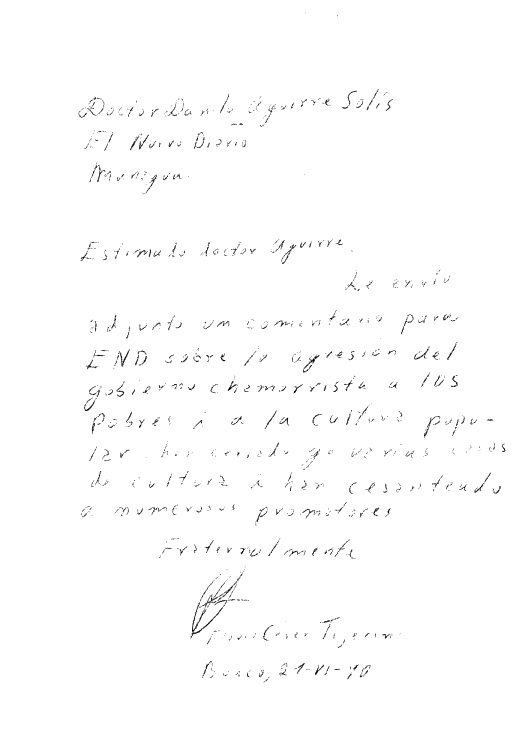 Doctor Danilo Aguirre Solís
El Nuevo Diario
Managua.
Estimado doctor Aguirre.
Le envío
adjunto un comentario para
END sobre la agresión del
gobierno chamorrista a los
pobres i a la cultura popu-
lar. han cerrado ya varias casas
de cultura i han cesanteado
a numerosos promotores
Fraternalmente
César Tijerino
Boaco, 21-VI-90